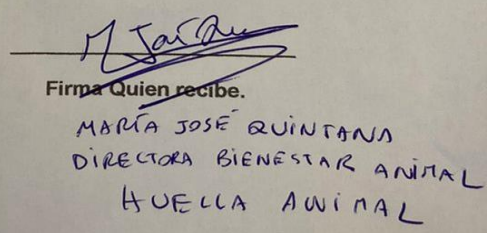 Firma Quien recibe.
MARÍA JOSÉ QUINTANA
DIRECTORA BIENESTAR ANIMAL
HUELLA ANIMAL